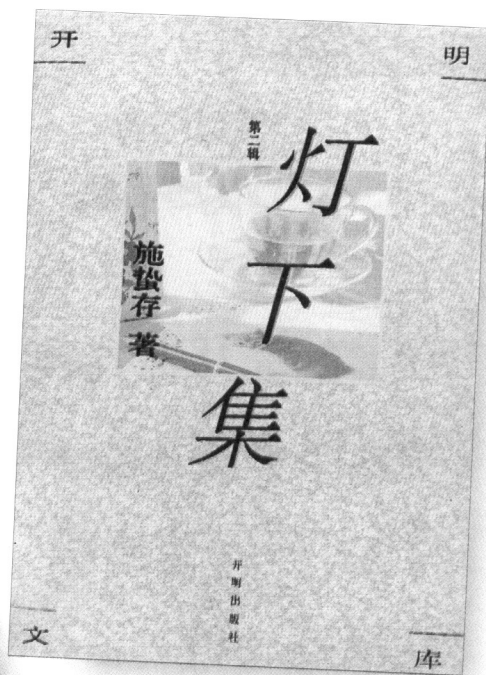 开
明
第二辑
灯下集
施蛰存 著
开明出版社
文
库